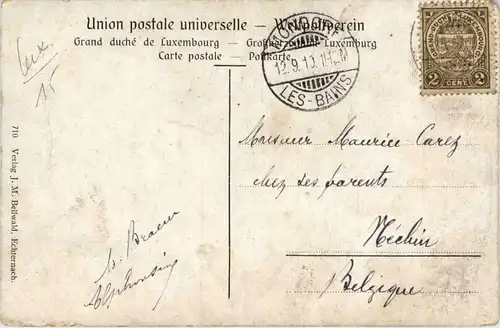 Union postale universelle – Weltpostverein
Grand duché de Luxembourg – Großherzogtum Luxemburg
Carte postale – Postkarte
MONDORF
12.9.13.
LES-BAINS
2 2
CENT
Lux
15
Monsieur Maurice Carez
chez ses parents
Néchin
Belgique
Alphonsine
710 Verlag J. M. Bellwald, Echternach.